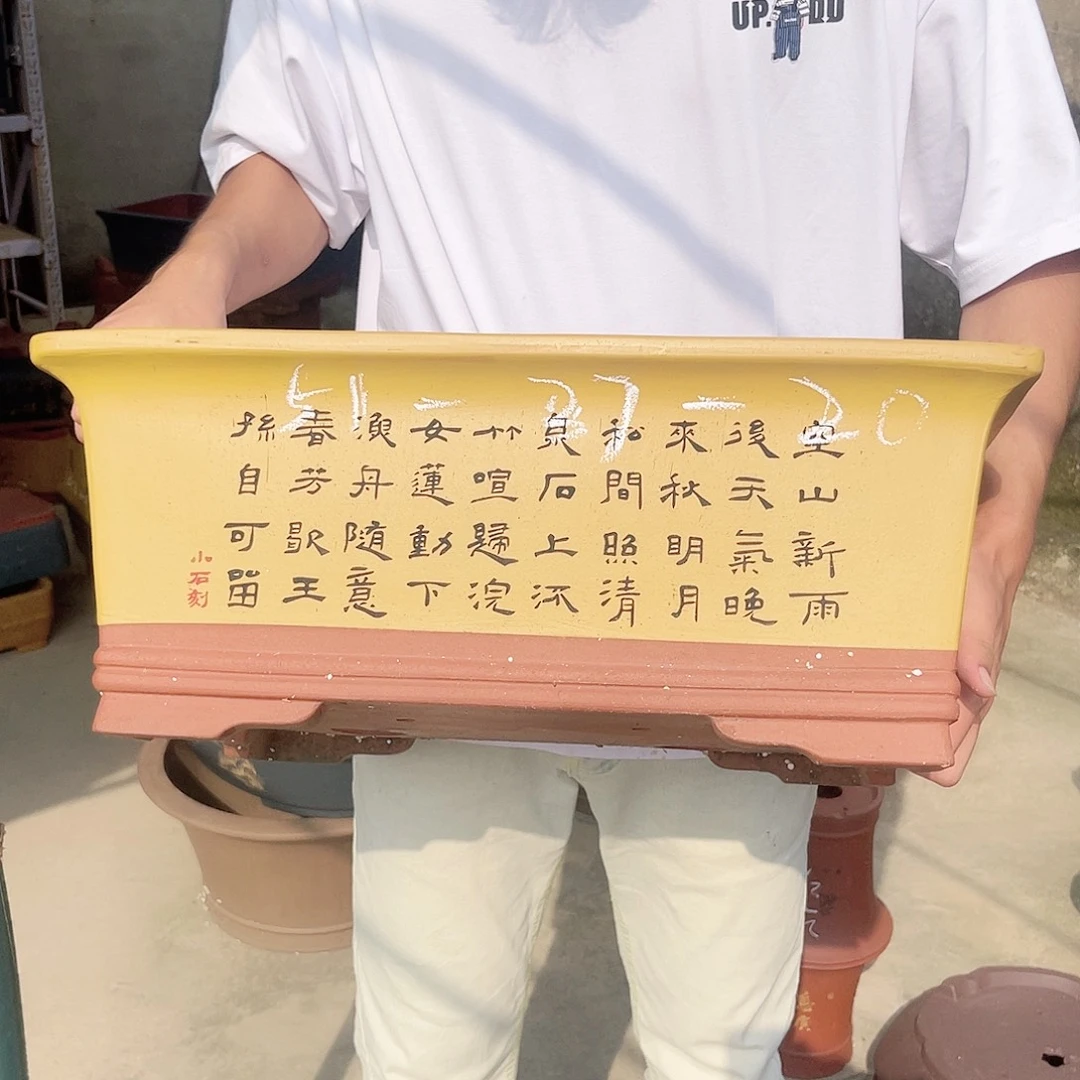 UP.
51-27-20
空山新雨
後天氣晚
來秋明月
松間照清
泉石上流
竹喧歸浣
女蓮動下
漁舟随意
春芳歇王
孫自可留
小石刻